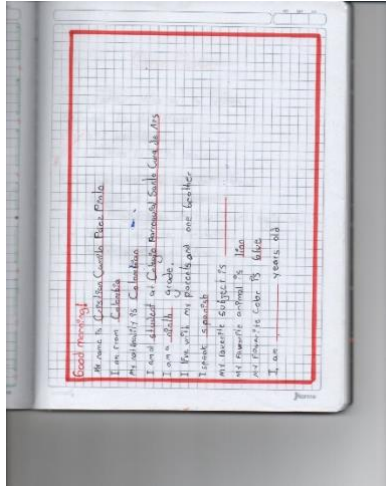 Good morning!
My name is Cristian Camilo Paez Prieto
I am from Colombia
My nationality is Colombian
I am student at Colegio Parroquial Santo Cura de Ars
I am a ninth grade.
I live with my parents and one brother
I speak spanish
my favorite subject is
my favourite animal is lion
my favourite color is blue
I am years old